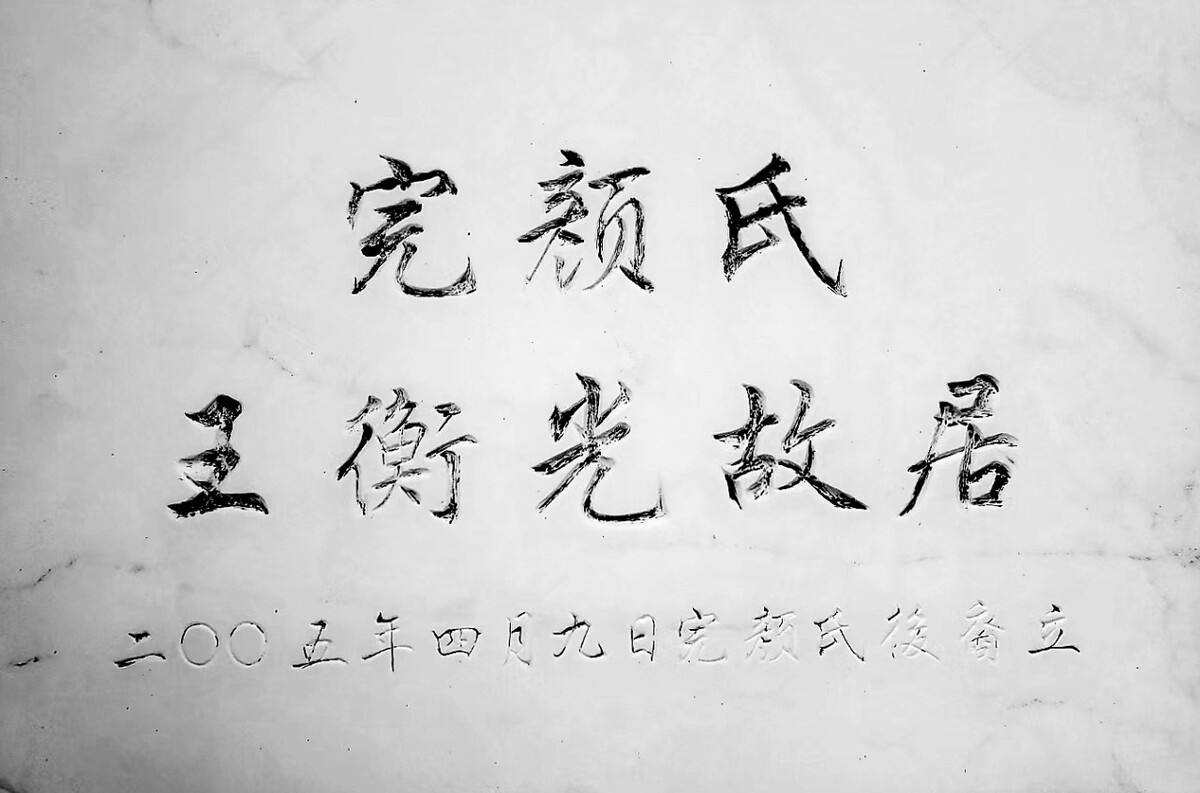 完颜氏
王衡光故居
二〇〇五年四月九日完颜氏後裔立